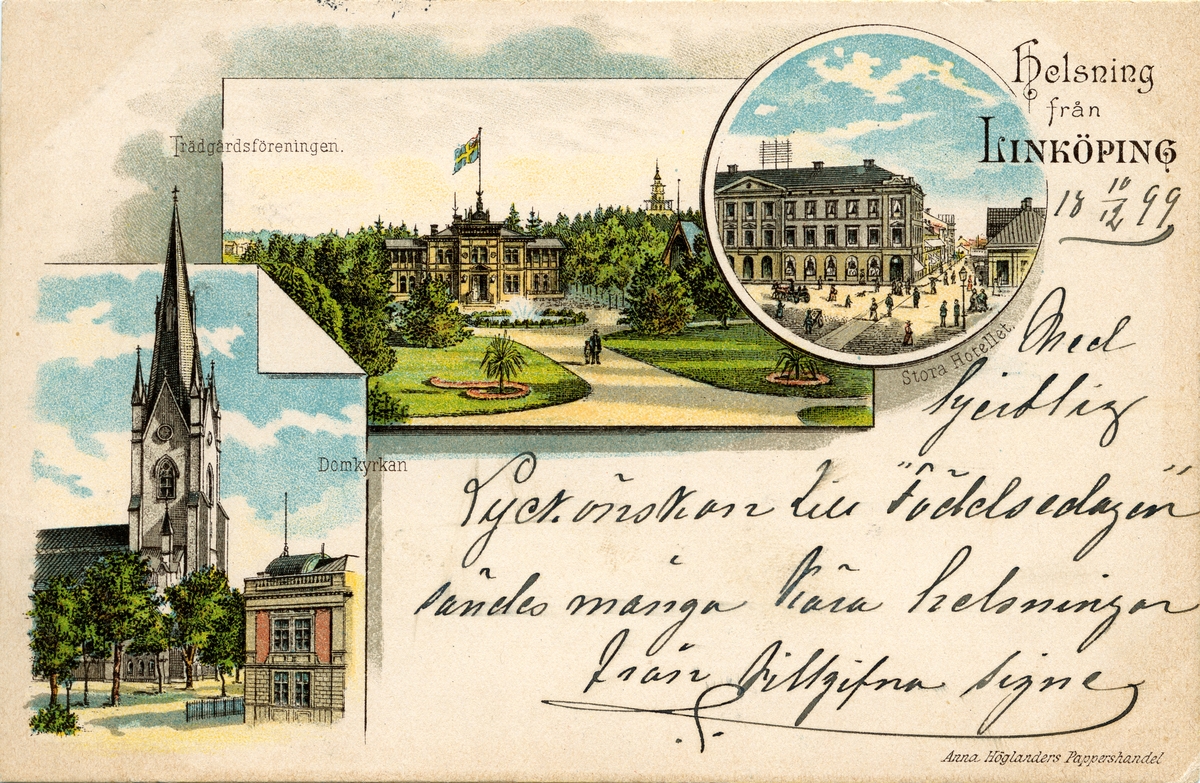 Helsning
från
LINKÖPING
18 10/12 99
Trädgårdsföreningen.
Stora Hotellet.
Domkyrkan
Med
hjertlig
Lyckönskan till "Födelsedagen"
sändes många kära helsningar
från tillgifna Signe
Anna Höglanders Pappershandel